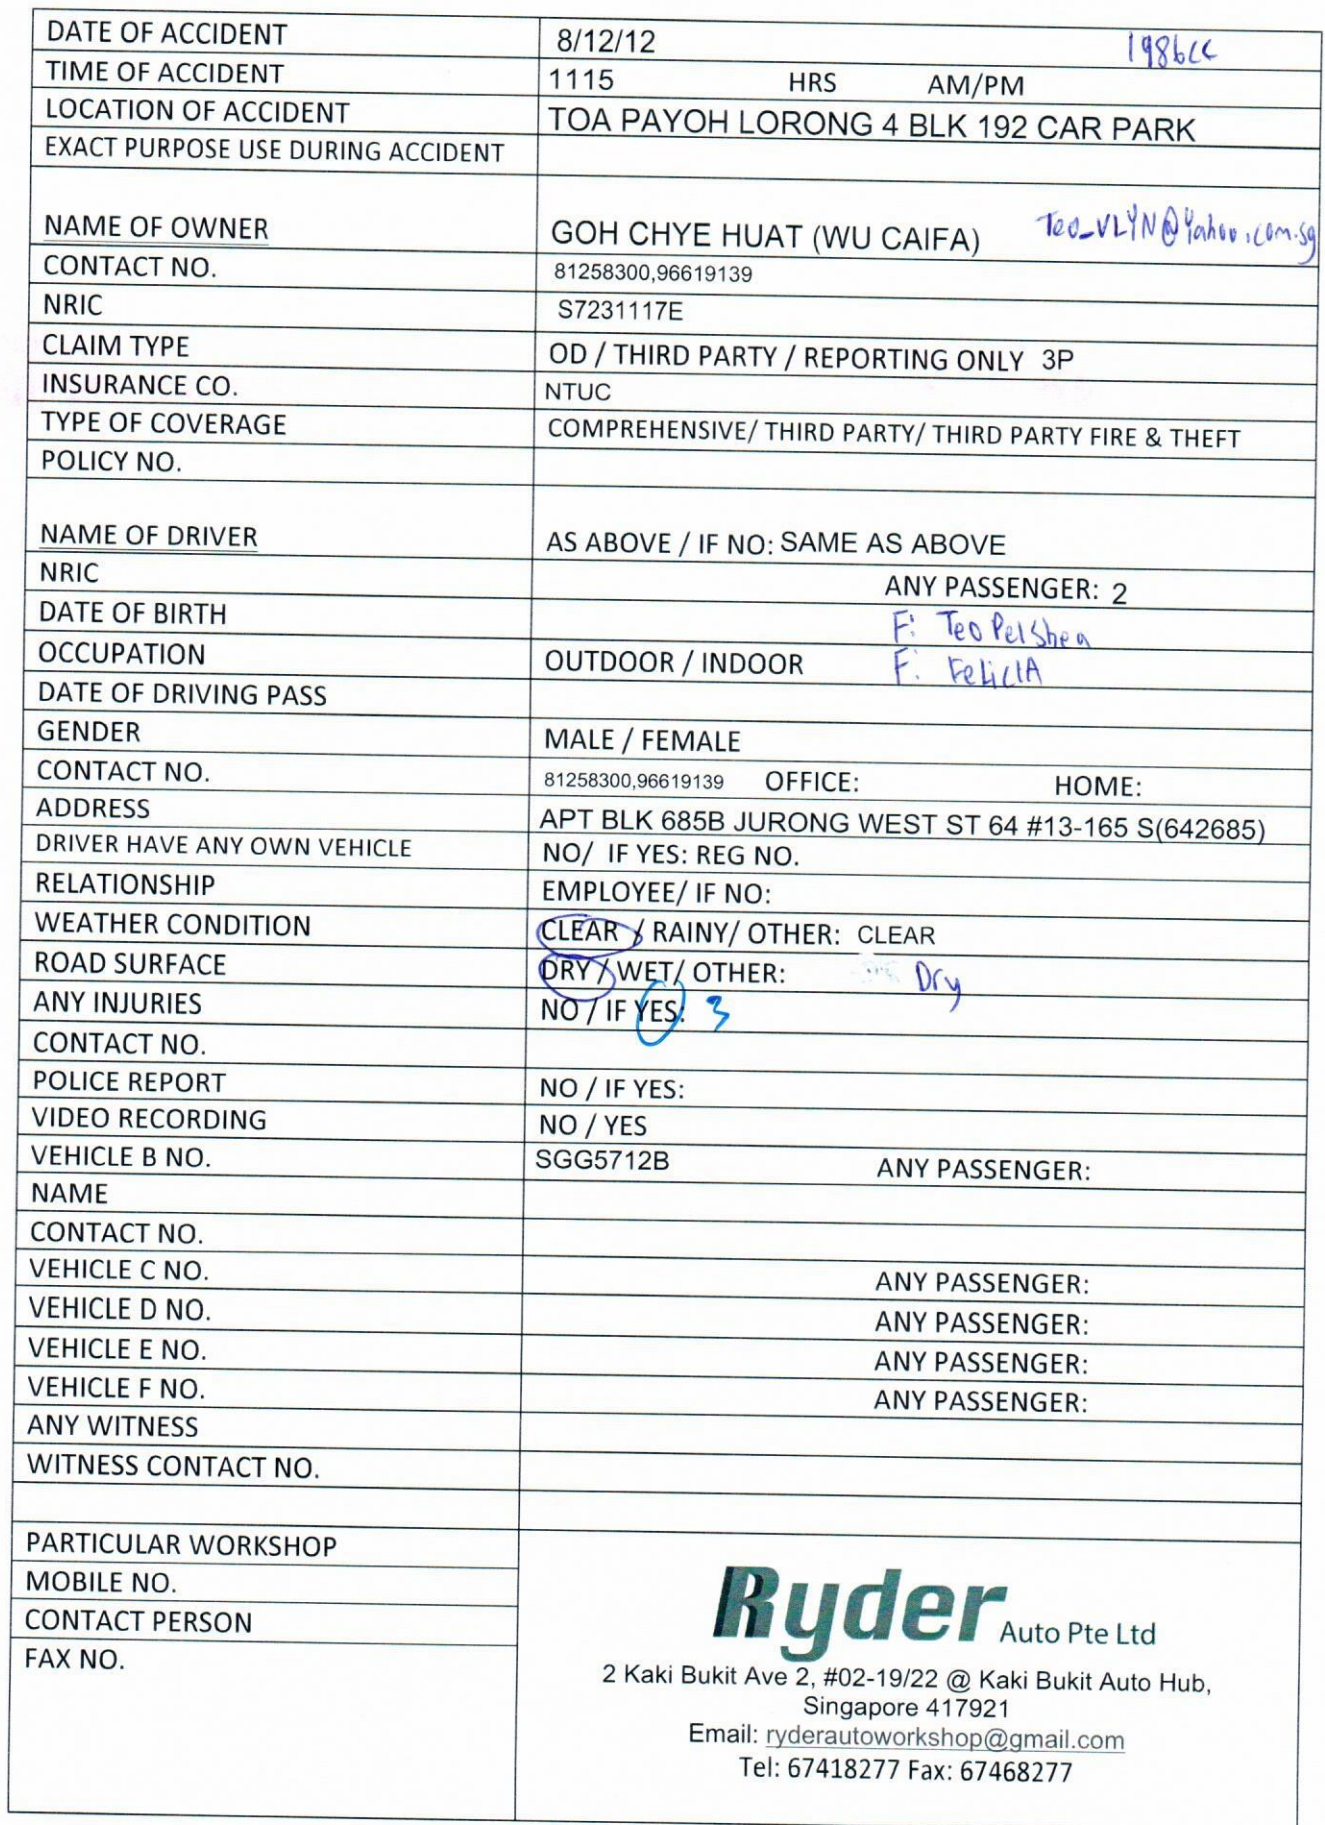 DATE OF ACCIDENT 8/12/12 1986cc
TIME OF ACCIDENT 1115 HRS AM/PM
LOCATION OF ACCIDENT TOA PAYOH LORONG 4 BLK 192 CAR PARK
EXACT PURPOSE USE DURING ACCIDENT
NAME OF OWNER GOH CHYE HUAT (WU CAIFA) Teo_VLYN@Yahoo.com.sg
CONTACT NO. 81258300,96619139
NRIC S7231117E
CLAIM TYPE OD / THIRD PARTY / REPORTING ONLY 3P
INSURANCE CO. NTUC
TYPE OF COVERAGE COMPREHENSIVE/ THIRD PARTY/ THIRD PARTY FIRE & THEFT
POLICY NO.
NAME OF DRIVER AS ABOVE / IF NO: SAME AS ABOVE
NRIC ANY PASSENGER: 2
DATE OF BIRTH F: Teo PeiShen
OCCUPATION OUTDOOR / INDOOR F: FeliciA
DATE OF DRIVING PASS
GENDER MALE / FEMALE
CONTACT NO. 81258300,96619139 OFFICE: HOME:
ADDRESS APT BLK 685B JURONG WEST ST 64 #13-165 S(642685)
DRIVER HAVE ANY OWN VEHICLE NO/ IF YES: REG NO.
RELATIONSHIP EMPLOYEE/ IF NO:
WEATHER CONDITION CLEAR / RAINY/ OTHER: CLEAR
ROAD SURFACE DRY / WET/ OTHER: Dry
ANY INJURIES NO / IF YES: 3
CONTACT NO.
POLICE REPORT NO / IF YES:
VIDEO RECORDING NO / YES
VEHICLE B NO. SGG5712B ANY PASSENGER:
NAME
CONTACT NO.
VEHICLE C NO. ANY PASSENGER:
VEHICLE D NO. ANY PASSENGER:
VEHICLE E NO. ANY PASSENGER:
VEHICLE F NO. ANY PASSENGER:
ANY WITNESS
WITNESS CONTACT NO.
PARTICULAR WORKSHOP
MOBILE NO.
CONTACT PERSON
FAX NO.
Ryder Auto Pte Ltd
2 Kaki Bukit Ave 2, #02-19/22 @ Kaki Bukit Auto Hub,
Singapore 417921
Email: ryderautoworkshop@gmail.com
Tel: 67418277 Fax: 67468277